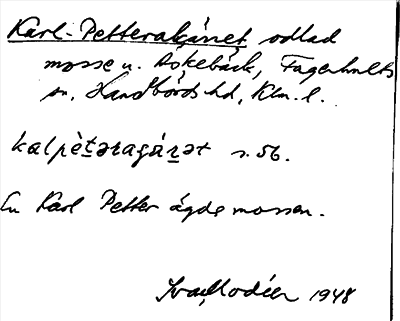 Karl-Petterakärret odlad
mosse u. Askebäck, Fagerhults
sn, Handbörds hd, Klm. l.
kalpètəragæ̣rət s. 56.
En Karl Petter ägde mossen.
Ivar Modéer 1948